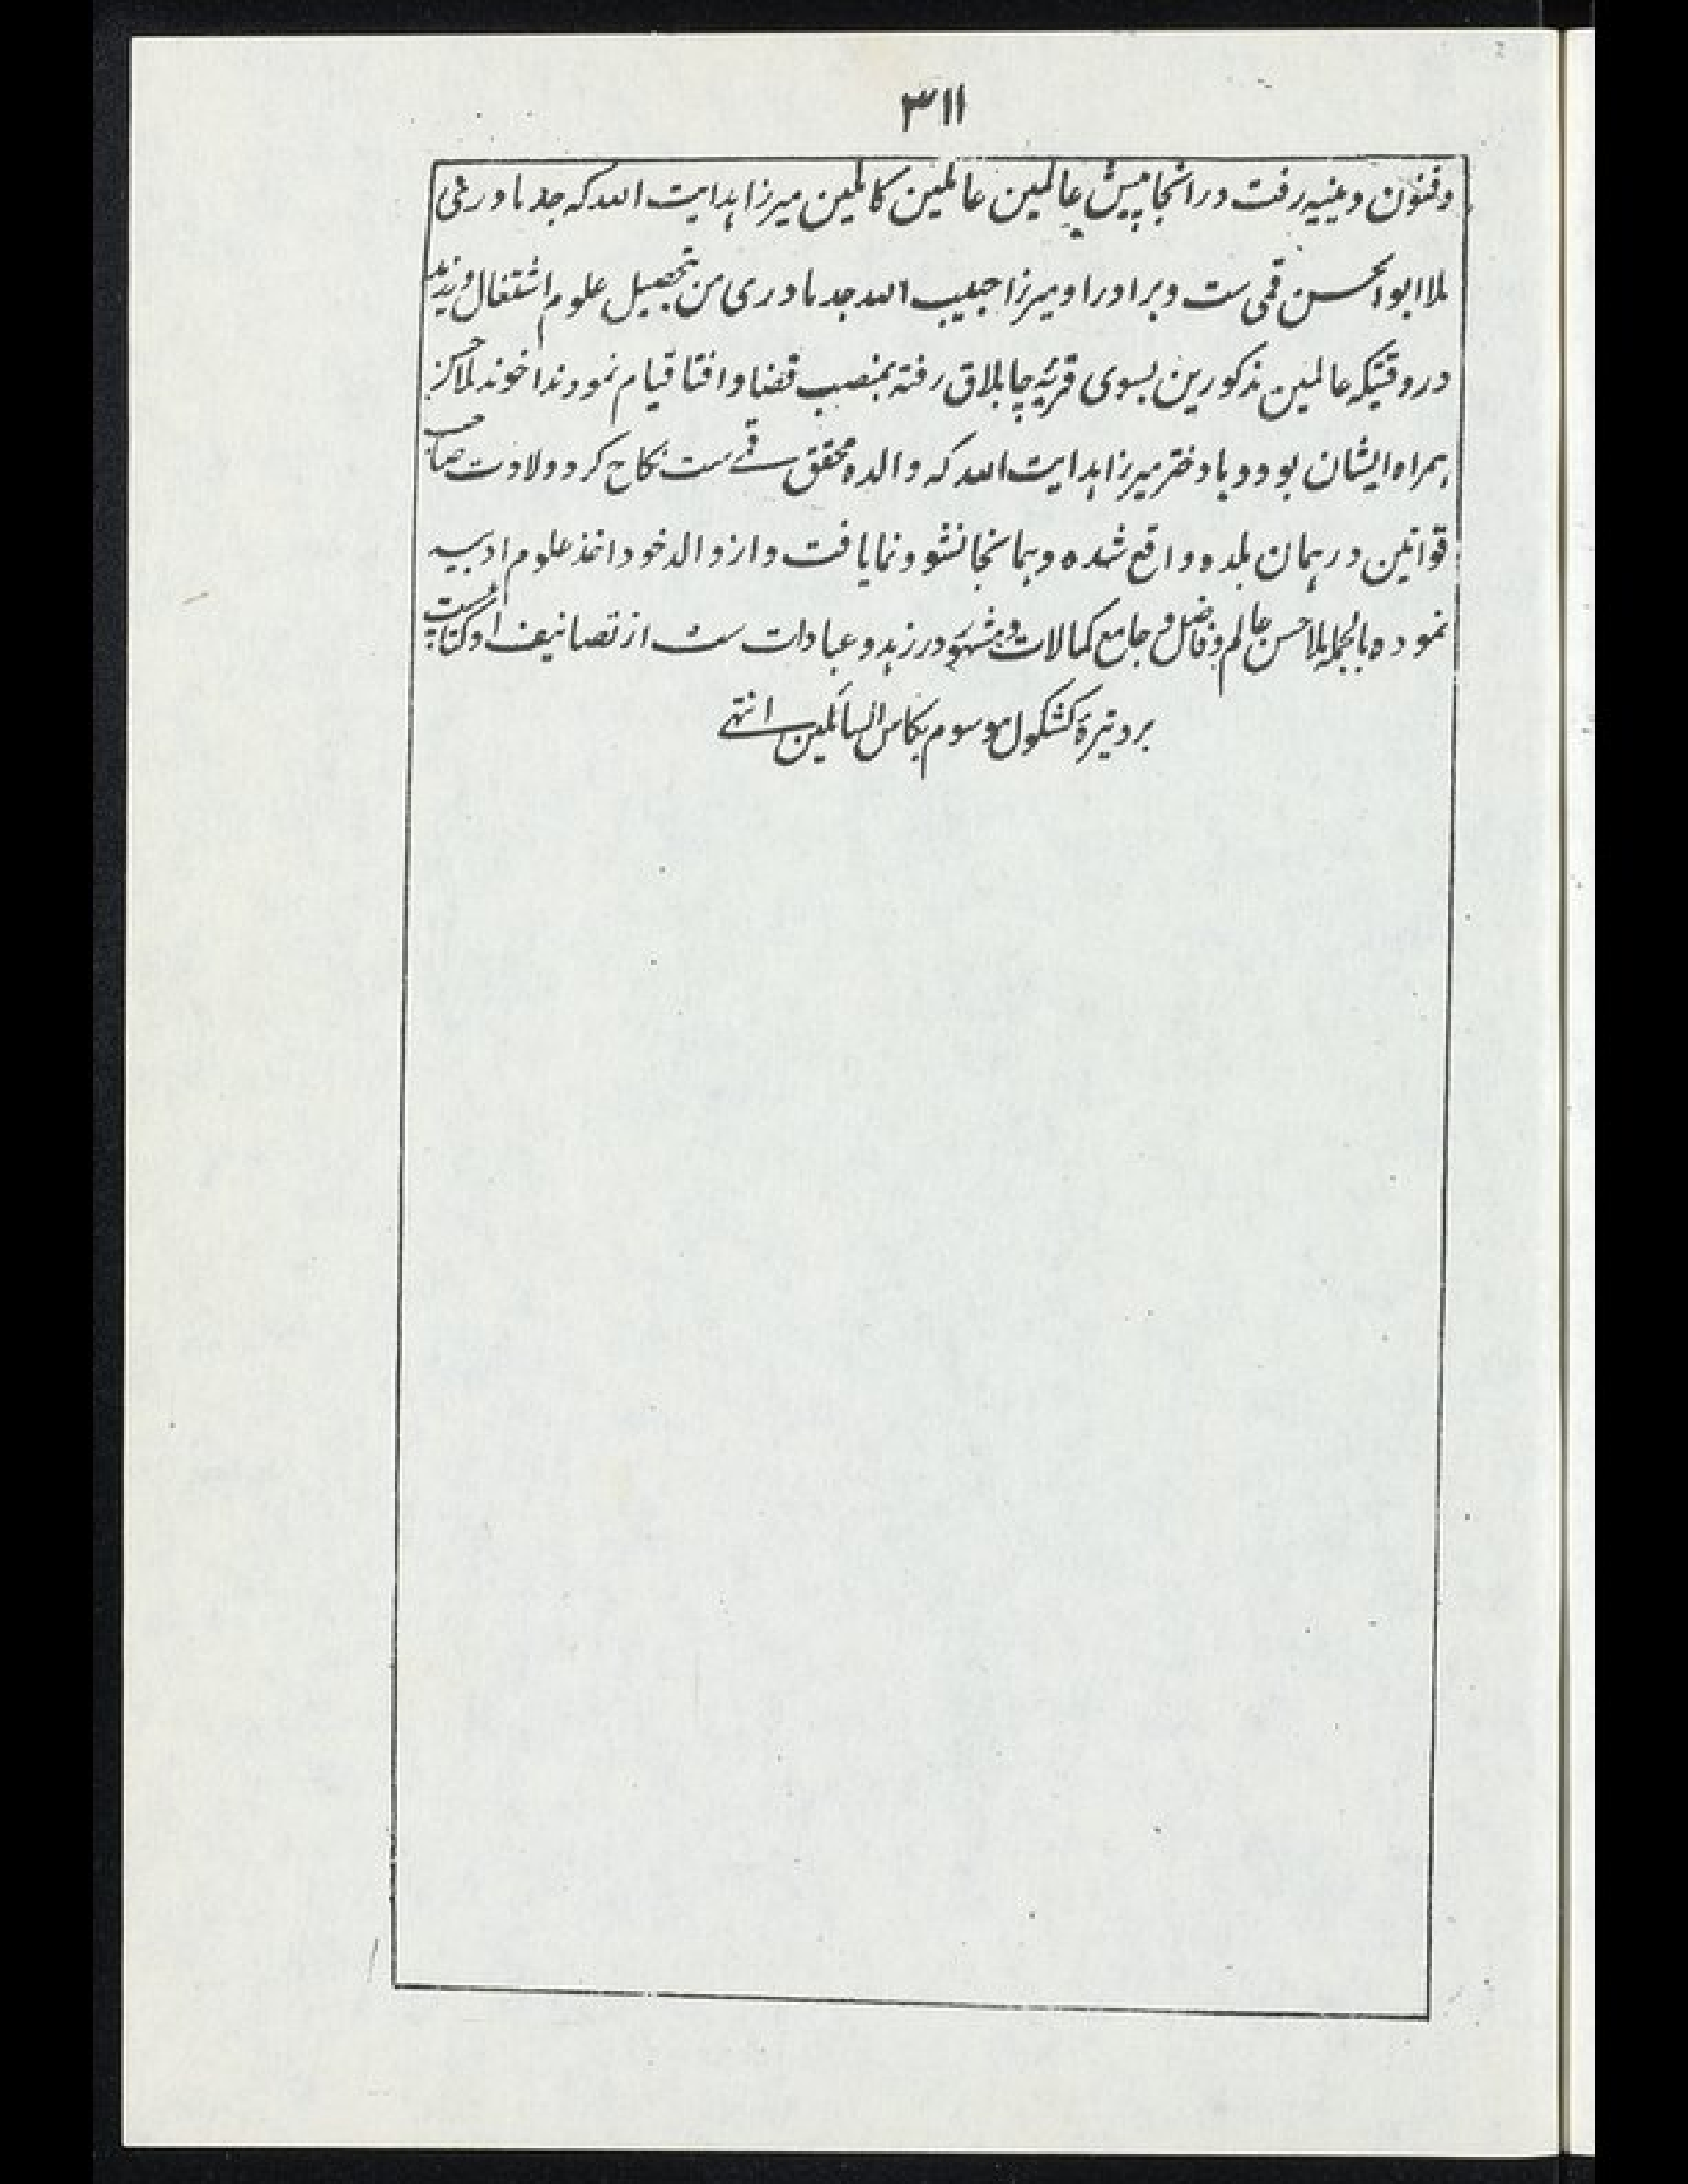 ٣١١
وفنون دینیه رفت در انجا پیش عالمین عاملین کاملین میرزا هدایت الله که جد مادری
ملا ابو الحسن قمی ست و برادر او میرزا حبیب الله جد مادری من بتحصیل علوم اشتغال ورزید
در وقتیکه عالمین مذکورین بسوی قریهٔ چابلاق رفته بمنصب قضا و افتا قیام نمودند اخوند ملا حسن
همراه ایشان بود و با دختر میرزا هدایت الله که والده محقق قمے ست نکاح کرد و ولادت صاحب
قوانین در همان بلده واقع شده و بهمانجا نشو و نما یافت و از والد خود اخذ علوم ادبیه
نموده بالجمله ملا حسن عالم و فاضل و جامع کمالات و مشهور در زهد و عبادات ست از تصانیف او کتابیست
بر وتیرهٔ کشکول موسوم بکاس السائلین انتهے